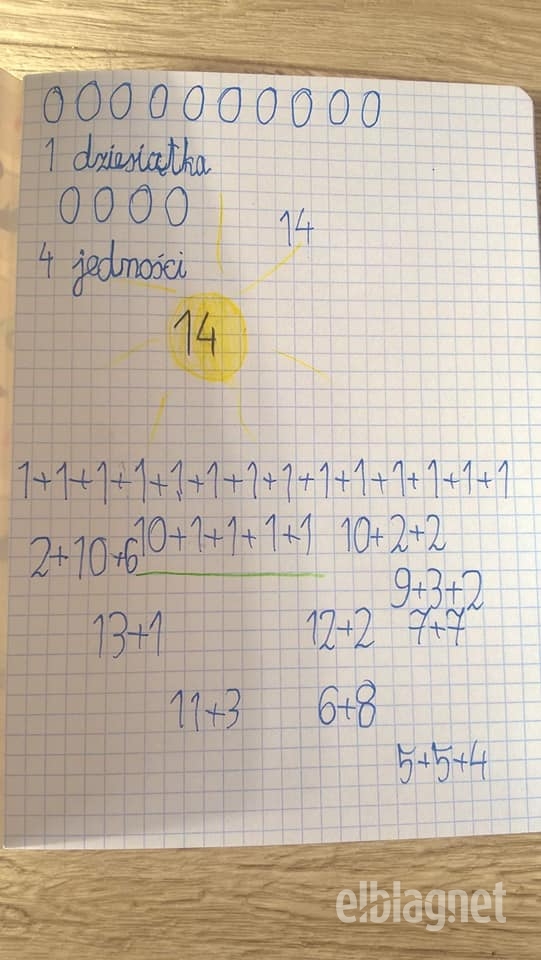 0 0 0 0 0 0 0 0 0 0
1 dziesiątka
0 0 0 0
14
4 jedności
14
1+1+1+1+1+1+1+1+1+1+1+1+1+1
2+10+6
10+1+1+1+1
10+2+2
9+3+2
13+1
12+2
7+7
11+3
6+8
5+5+4
elblagnet